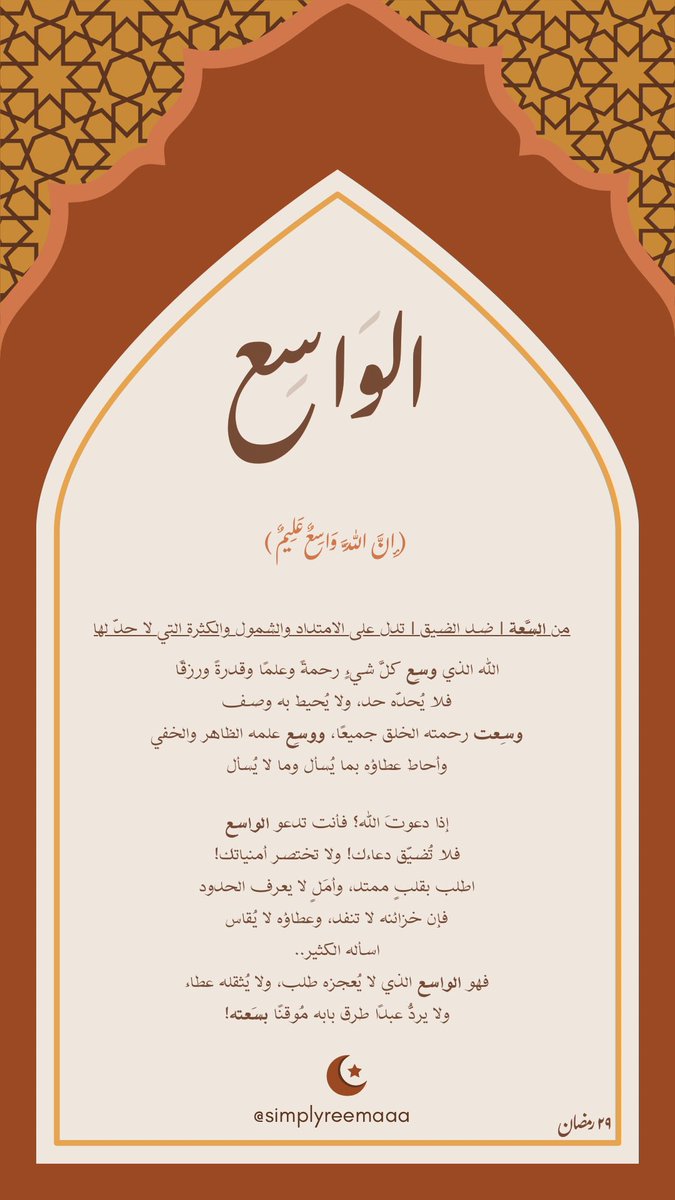 الوَاسِع
(إِنَّ اللَّهَ وَاسِعٌ عَلِيمٌ)
من السَّعة | ضد الضيق | تدل على الامتداد والشمول والكثرة التي لا حدّ لها
الله الذي وسع كلَّ شيءٍ رحمةً وعلمًا وقدرةً ورزقًا
فلا يُحدّه حد، ولا يُحيط به وصف
وسِعت رحمته الخلق جميعًا، ووسع علمه الظاهر والخفي
وأحاط عطاؤه بما يُسأل وما لا يُسأل
إذا دعوتَ الله؟ فأنت تدعو الواسع
فلا تُضيّق دعاءك! ولا تختصر أمنياتك!
اطلب بقلبٍ ممتد، وأمَلٍ لا يعرف الحدود
فإن خزائنه لا تنفد، وعطاؤه لا يُقاس
اسأله الكثير..
فهو الواسع الذي لا يُعجزه طلب، ولا يُثقله عطاء
ولا يردُّ عبدًا طرق بابه مُوقنًا بسَعته!
@simplyreemaaa
٢٩ رمضان